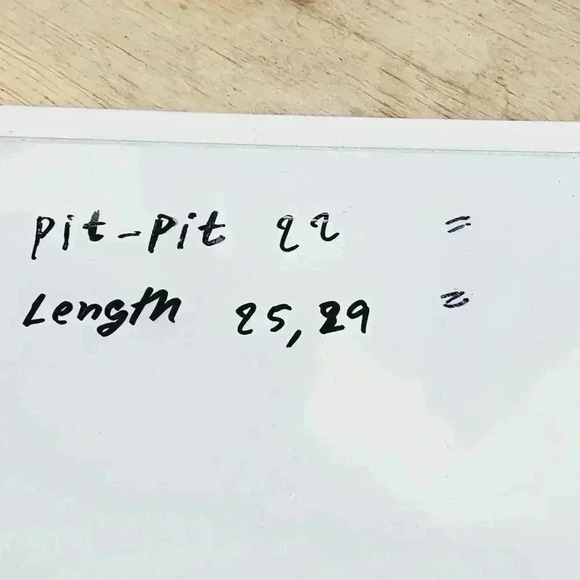 Pit-Pit 22 =
Length 25, 29 =